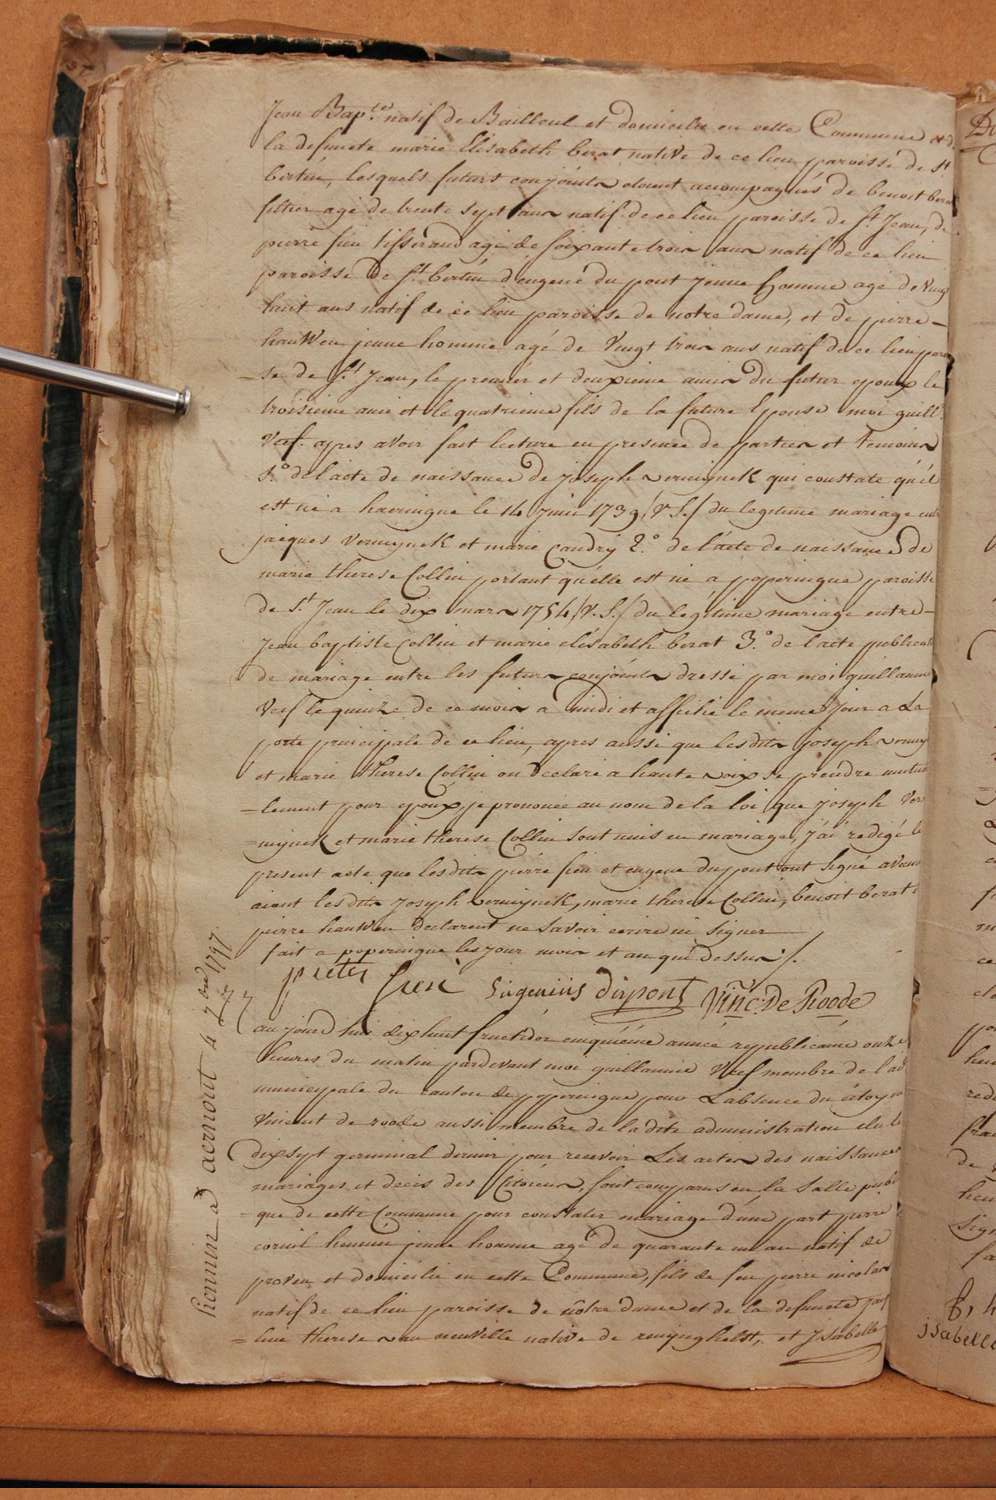 Jean Bapte natif de Bailleul et domicilie en cette Commune et de
la defuncte marie Elisabeth berat native de ce lieu paroisse de St
bertin, lesquels futurs conjoints etoient accompagnés de benoit berat
filtier agé de trente sept ans natif de ce lieu paroisse de St Jean, de
pierre sieu tisserand agé de soixante trois ans natif de ce lieu
paroisse de St bertin d'eugene du pont jeune homme agé de Vingt
huit ans natif de ce lieu paroisse de notre dame, et de pierre
hauwen jeune homme agé de Vingt trois ans natif de ce lieu parois
-se de St Jean, le premier et deuxieme amis du futur epoux le
troisieme ami et le quatrieme fils de la future Epouse moi guill.
Veef. apres avoir fait lecture en presence de parties et temoins
1.° de l'acte de naissance de joseph vermeynck qui constate qu'il
est né a haeringue le 14 juin 1739 /V.S./ du legitime mariage entre
jacques vermeynck et marie Candry 2.° de l'acte de naissance de
marie therese Collin portant qu'elle est né a poperingue paroisse
de St Jean le dix mars 1754 /V.S./ du legitime mariage entre
Jean baptiste Collin et marie elisabeth berat 3.° de l'acte publication
de mariage entre les futurs conjoints dressé par moi guillaume
Veef le quinze de ce mois a midi et affiché le meme jour a La
porte principale de ce lieu, apres aussi que lesdits joseph vermey
et marie therese Collin on declaré a haute voix se prendre mutuel
-lement pour epoux, je prononce au nom de la loi que joseph Ver
-meynck et marie therese Collin sont unis en mariage, j'ai redigé le
present acte que lesdits pierre sieu et eugene dupont ont signé avec moi
aiant lesdits joseph vermeynck, marie therese Collin, benoit berat et
pierre hauwen declarent ne savoir ecrire ni signer
fait a poperingue les jour mois et an que dessus /.
pieter sieu Eugenius dupont Vinc: De Roode
hennin a aernout 4 7bre 1797
77
aujourd hui dixhuit fructidor cinquiéme année republicaine onze
heures du matin pardevant moi guillaume Veef membre de l'ad
municipale du canton de poperingue pour L'absence du citoyen
Vincent de roode aussi membre de la dite administration elu le
dixsept germinal dernier pour recevoir Les actes des naissances
mariages et decés des Citoiens, sont comparus en la salle publi
-que de cette Commune pour constater mariage d'une part pierre
corneil hennin jeune homme agé de quarante un an natif de
proven et domicilie en cette Commune, fils de feu pierre nicolas
natif de ce lieu paroisse de nôtre dame et de la defuncte jac
-line therese van neuville native de reninghelst, et Jsabelle